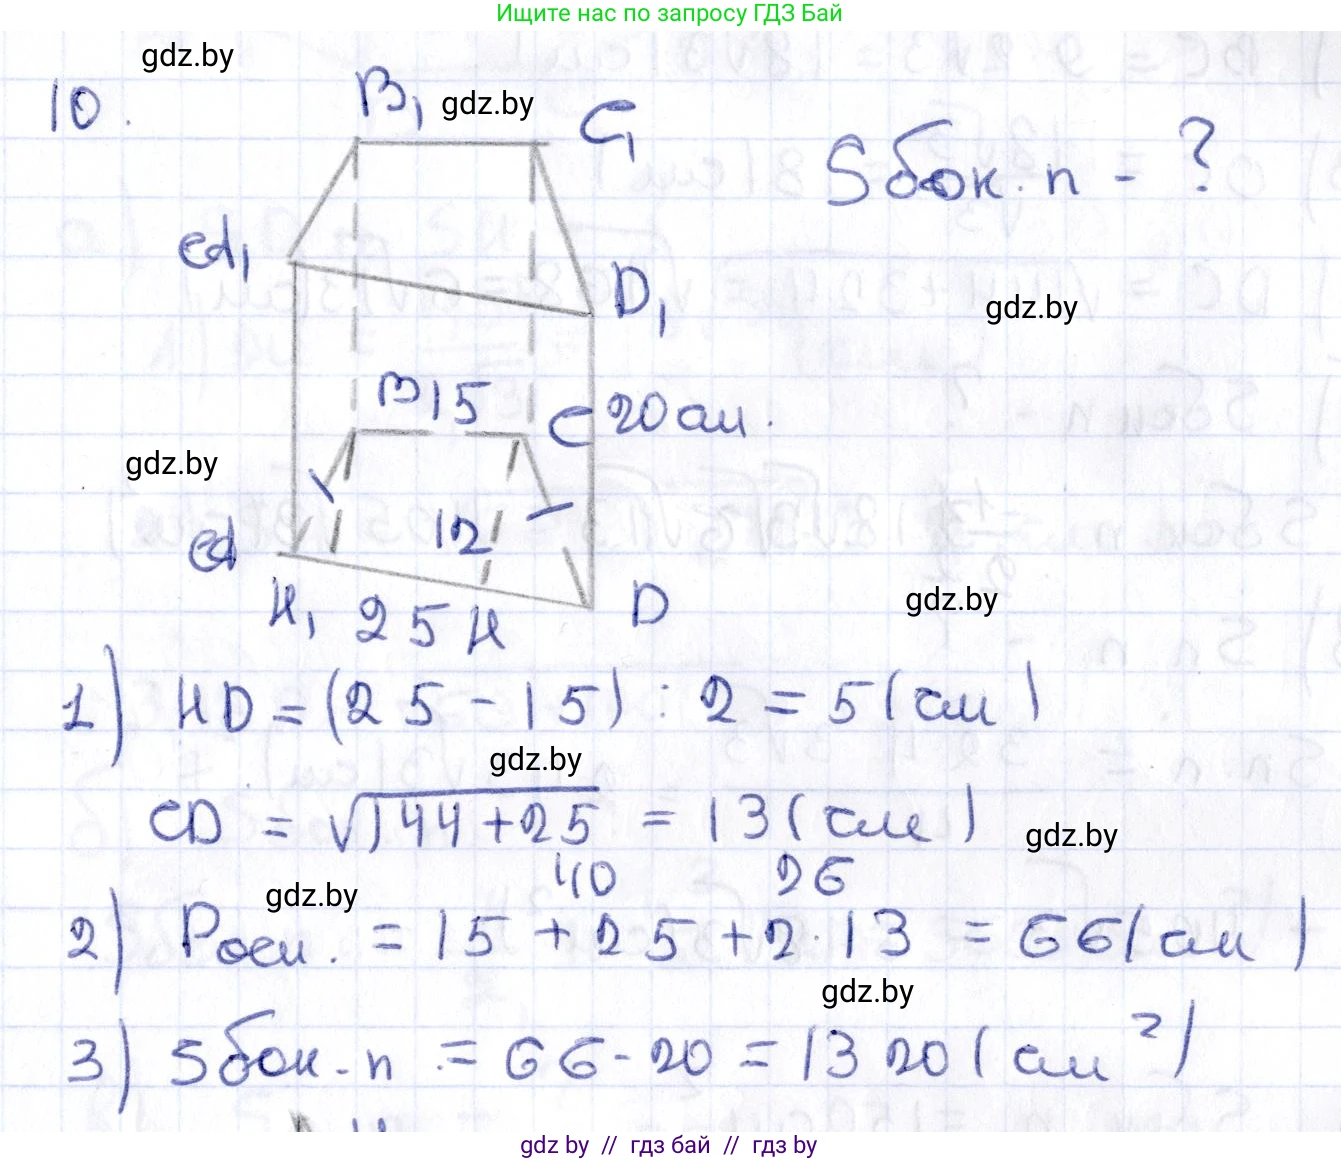 Ищите нас по запросу ГДЗ Бай
gdz.by
10.
B₁
gdz.by
C₁
Sбок.п - ?
A₁
D₁
gdz.by
B 15
C
20 см.
gdz.by
A
12
gdz.by
H₁ 25 H
D
1) HD = (25 - 15) : 2 = 5 (см)
gdz.by
CD = √144+25 = 13 (см)
gdz.by
40 26
gdz.by
2) Pосн. = 15 + 25 + 2·13 = 66 (см)
gdz.by
3) Sбок.п = 66·20 = 1320 (см²)
gdz.by // гдз бай // гдз by